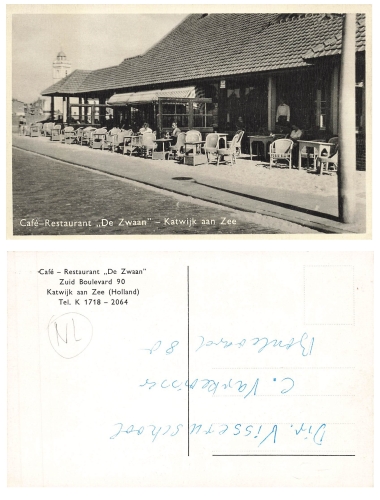 Café-Restaurant „De Zwaan" – Katwijk aan Zee
Café – Restaurant „De Zwaan"
Zuid Boulevard 90
Katwijk aan Zee (Holland)
Tel. K 1718 – 2064
NL
Dir. Visserijschool
C. Varkevisser
Boulevard 80